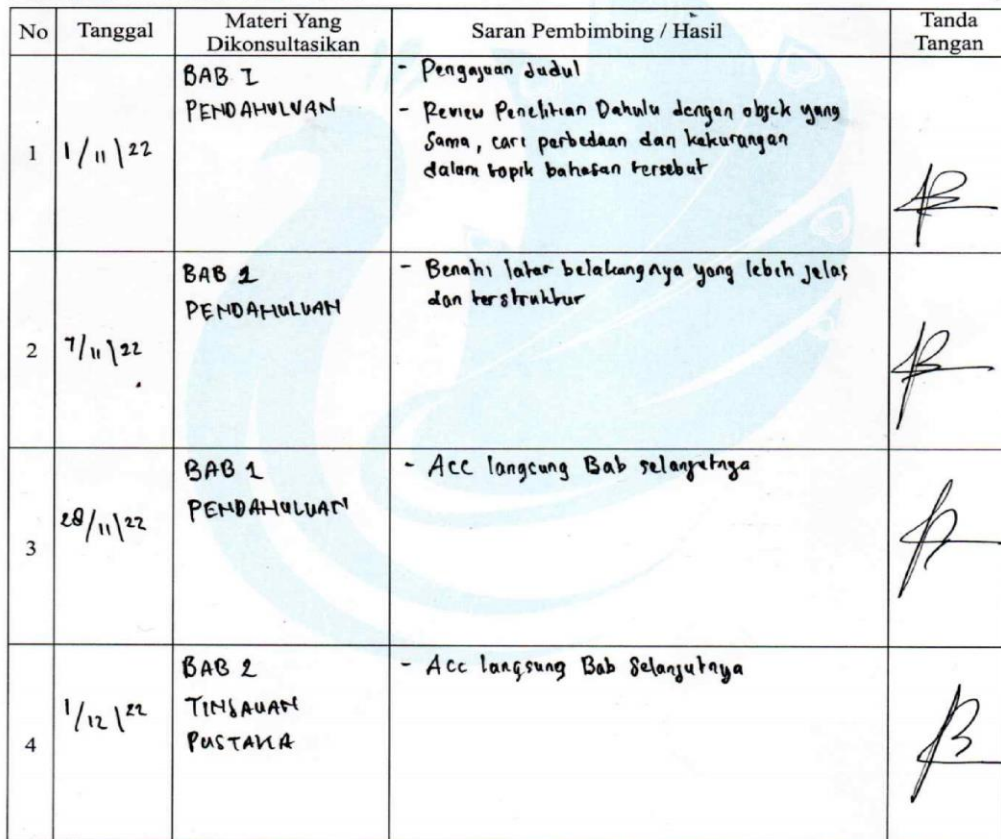 No Tanggal Materi Yang Dikonsultasikan Saran Pembimbing / Hasil Tanda Tangan
1 1/11/22 BAB I
PENDAHULUAN
- Pengajuan Judul
- Review Penelitian Dahulu dengan objek yang
Sama, cari perbedaan dan kekurangan
dalam topik bahasan tersebut
2 7/11/22 BAB 1
PENDAHULUAN
- Benahi latar belakangnya yang lebih jelas
dan terstruktur
3 28/11/22 BAB 1
PENDAHULUAN
- Acc langsung Bab selanjutnya
4 1/12/22 BAB 2
TINJAUAN
PUSTAKA
- Acc langsung Bab Selanjutnya